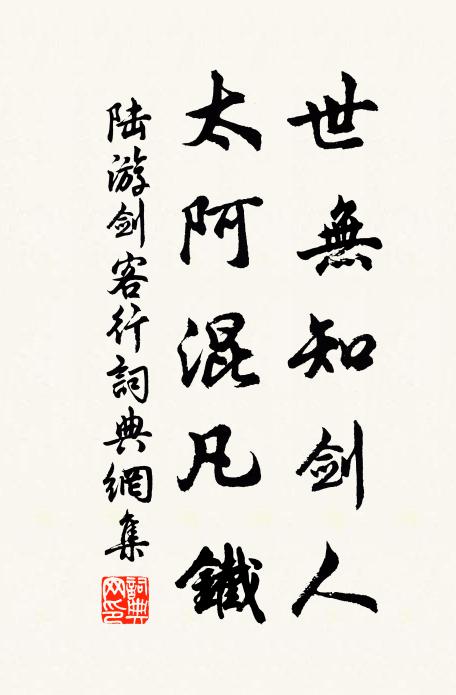 世無知剑人
太阿混凡鐵
陆游剑客行詞典網集
詞典网印